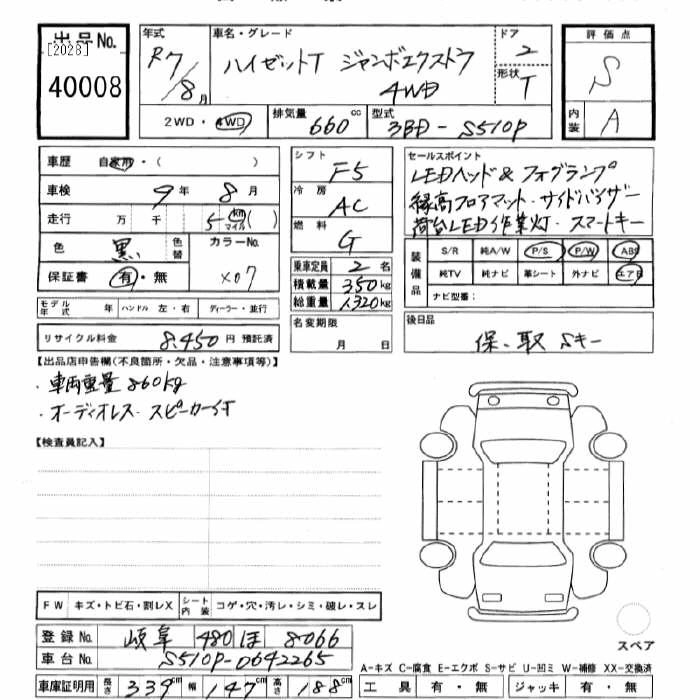 出品No.
[2028]
40008
年式
R7/8月
車名・グレード
ハイゼットT ジャンボエクストラ
4WD
ドア
2
形状
T
評価点
S
内装
A
2WD・4WD
排気量
660 cc
型式
3BD-S510P
車歴 自家用・( )
車検 9年 8月
走行 万 千 5 km マイル ( )
色 黒 色替
カラーNo.
X07
保証書 有・無
モデル年式 年 ハンドル 左・右 ディーラー・並行
リサイクル料金 8,450 円 預託済
シフト
F5
冷房
AC
燃料
G
乗車定員 2 名
積載量 350 kg
総重量 1,320 kg
名変期限
月 日
セールスポイント
LEDヘッド&フォグランプ
縁高フロアマット・サイドバイザー
荷台LED作業灯・スマートキー
装備品
S/R 純A/W P/S P/W ABS
純TV 純ナビ 革シート 外ナビ エアB
ナビ型番:
後日品
保、取 Sキー
【出品店申告欄(不良箇所・欠品・注意事項等)】
・車両重量 860kg
・オーディオレス・スピーカー付
【検査員記入】
FW キズ・トビ石・割レX シート内装 コゲ・穴・汚レ・シミ・破レ・スレ
登録No. 岐阜 480 ほ 8066
車台No. S510P-0642265
車庫証明用 長さ 339cm 幅 147cm 高さ 188cm
スペア
A-キズ C-腐食 E-エクボ S-サビ U-凹ミ W-補修 XX-交換済
工具 有・無 ジャッキ 有・無